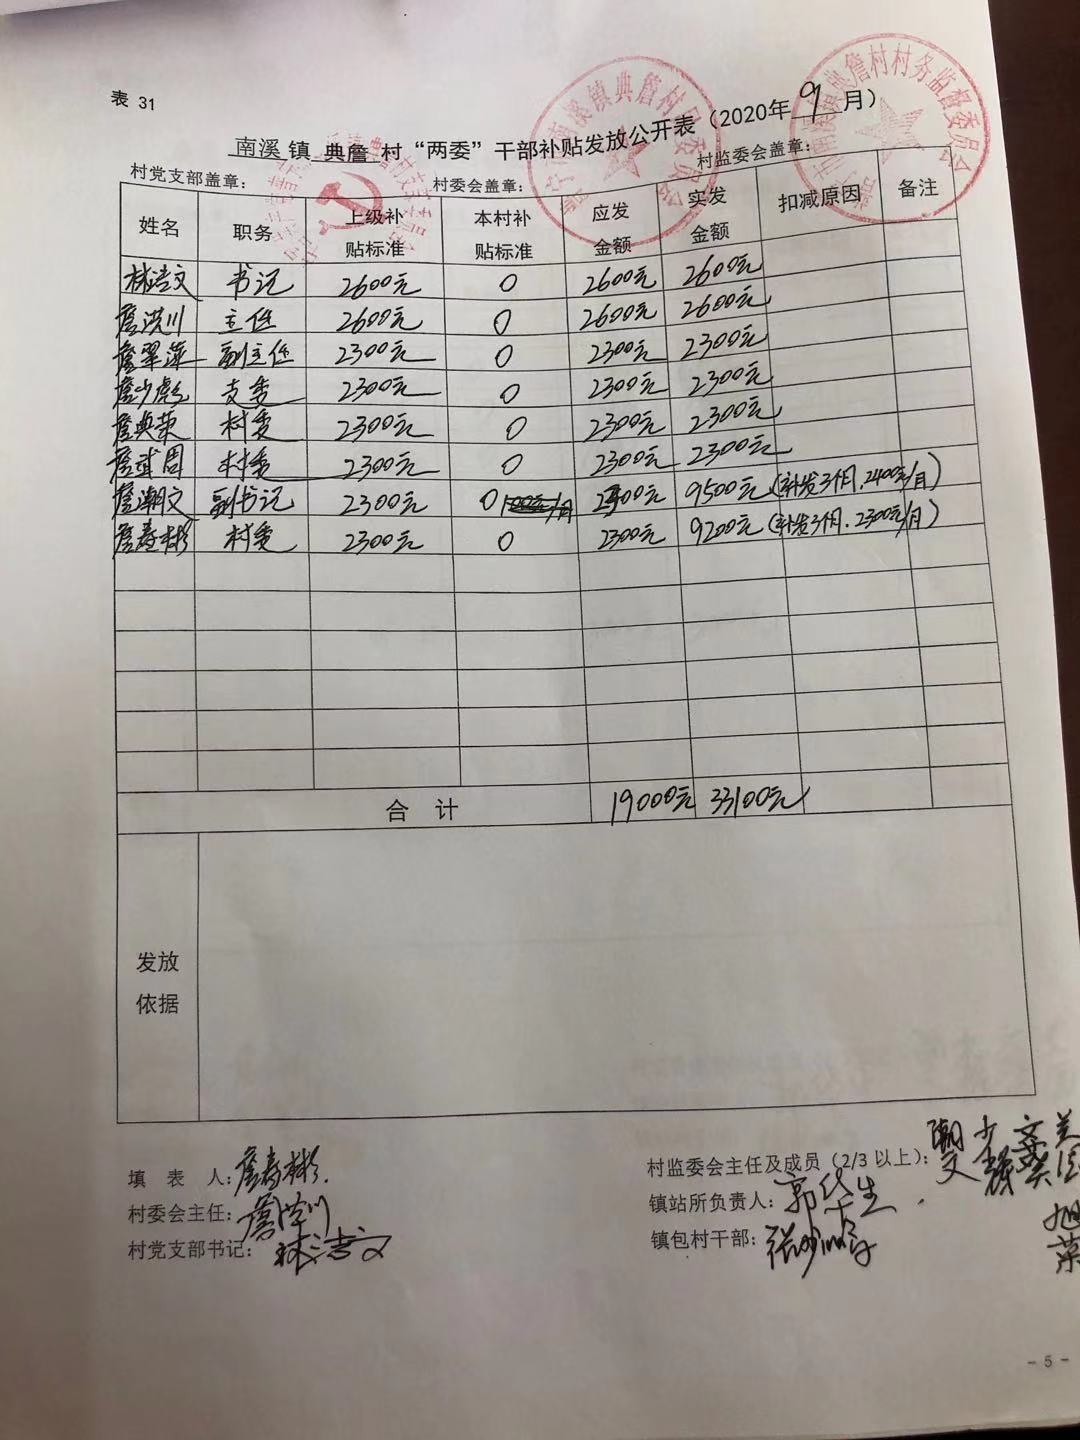 表 31
南溪 镇 典詹 村“两委”干部补贴发放公开表（2020年 9 月）
村党支部盖章： 村委会盖章： 村监委会盖章：
姓名 职务 上级补贴标准 本村补贴标准 应发金额 实发金额 扣减原因 备注
林浩文 书记 2600元 0 2600元 2600元
詹洪川 主任 2600元 0 2600元 2600元
詹翠萍 副主任 2300元 0 2300元 2300元
詹少彪 支委 2300元 0 2300元 2300元
詹典荣 村委 2300元 0 2300元 2300元
詹武周 村委 2300元 0 2300元 2300元
詹潮文 副书记 2300元 0 2300元 9500元 (补发3个月.2400元/月)
詹春彬 村委 2300元 0 2300元 9200元 (补发3个月.2300元/月)
合 计 19000元 33100元
发放依据
填 表 人：詹春彬.
村监委会主任及成员（2/3 以上）：
村委会主任：詹洪川
镇站所负责人：
村党支部书记：林浩文
镇包村干部：
- 5 -